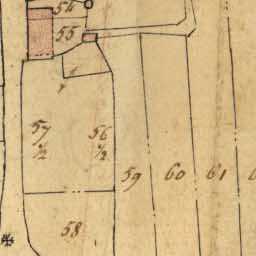 54
55
57 ½
56 ½
59
60
61
58